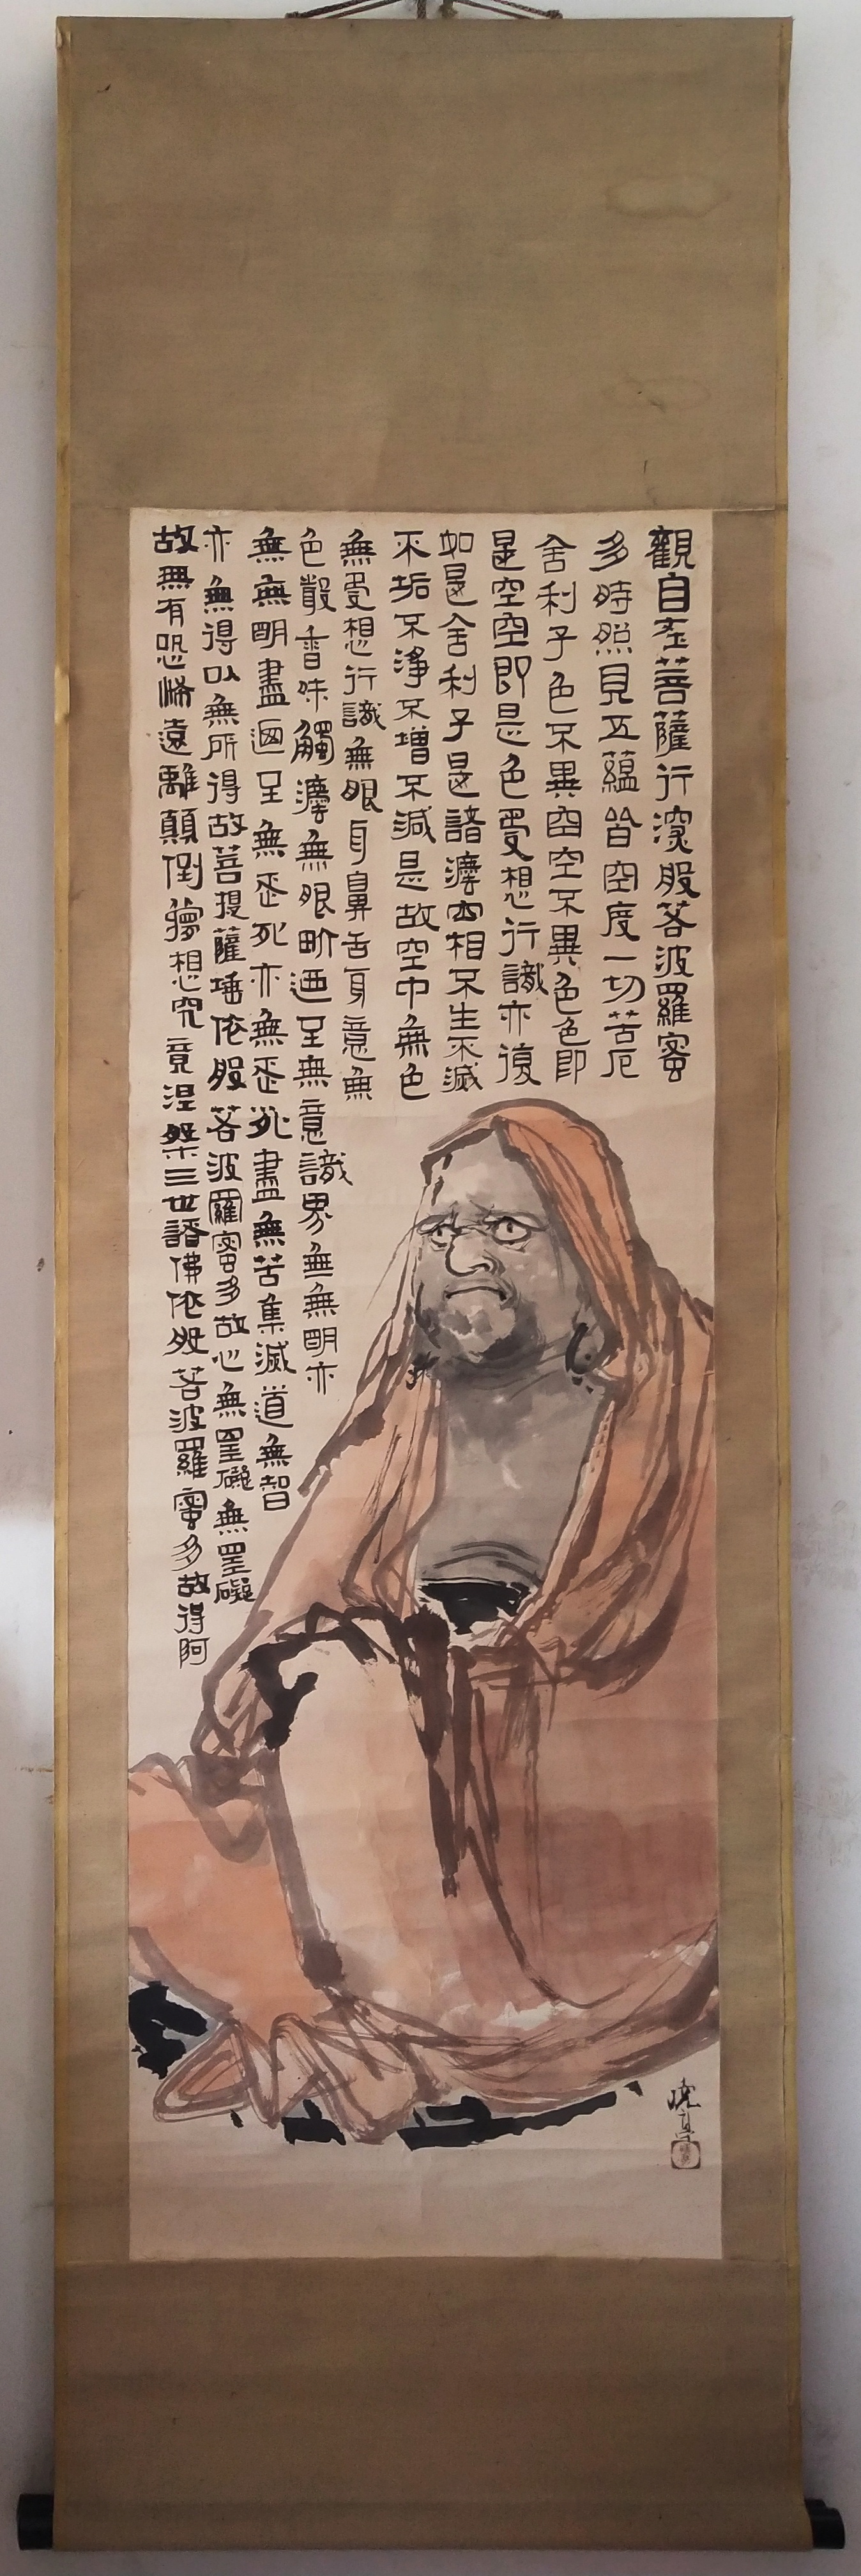 觀自在菩薩行深般若波羅蜜
多時照見五蘊皆空度一切苦厄
舍利子色不異空空不異色色即
是空空即是色受想行識亦復
如是舍利子是諸法空相不生不滅
不垢不淨不增不減是故空中無色
無受想行識無眼耳鼻舌身意無
色聲香味觸法無眼界迺至無意識界無無明亦
無無明盡迺至無老死亦無老死盡無苦集滅道無智
亦無得以無所得故菩提薩埵依般若波羅蜜多故心無罣礙無罣礙
故無有恐怖遠離顛倒夢想究竟涅槃三世諸佛依般若波羅蜜多故得阿